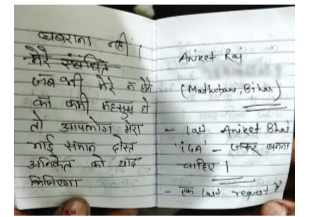 घबराना नहीं!
मेरे संबंधित
जब भी मेरे न होने
की कमी महसुस हो
तो आपलोग मेरा
भाई समान दोस्त
अनिकेत को याद
किजिएगा
Aniket Raj
(Madhubani, Bihar)
- last Aniket Bhai
IGA - जरूर बनना
चाहिए।
- एक last request है